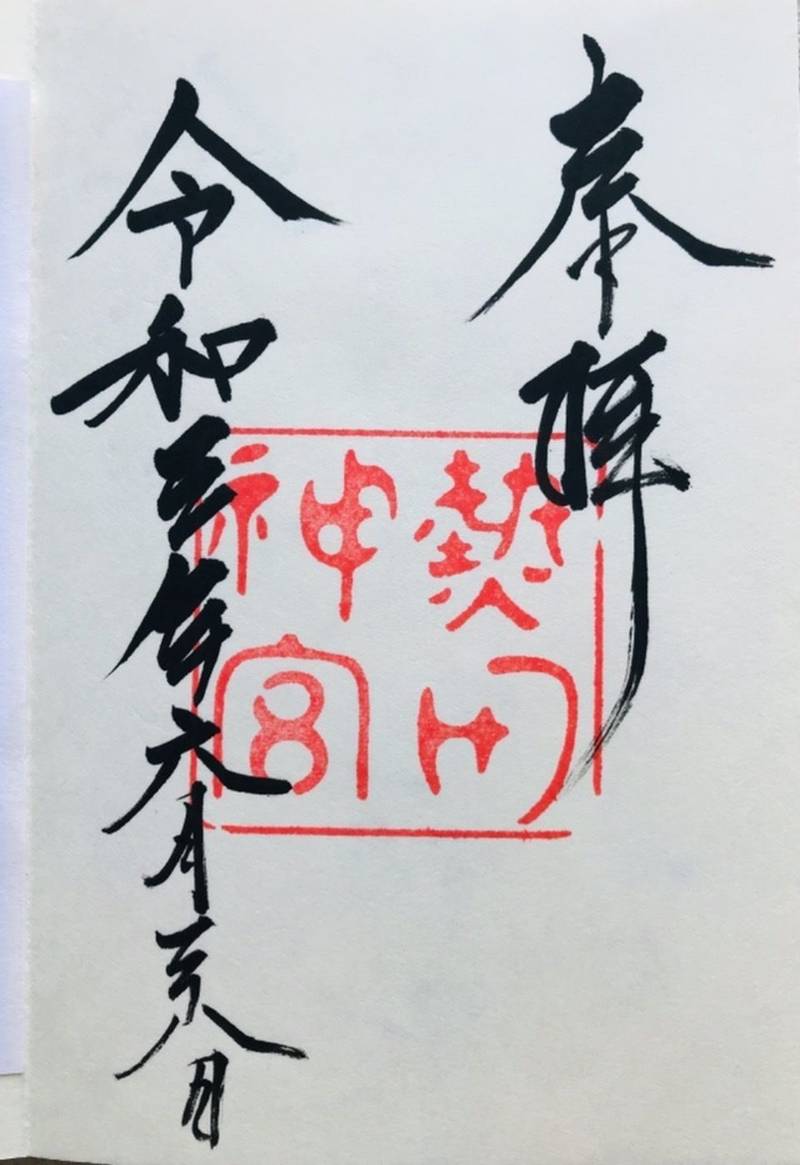 奉拝
熱田
神宮
令和三年六月二十八日